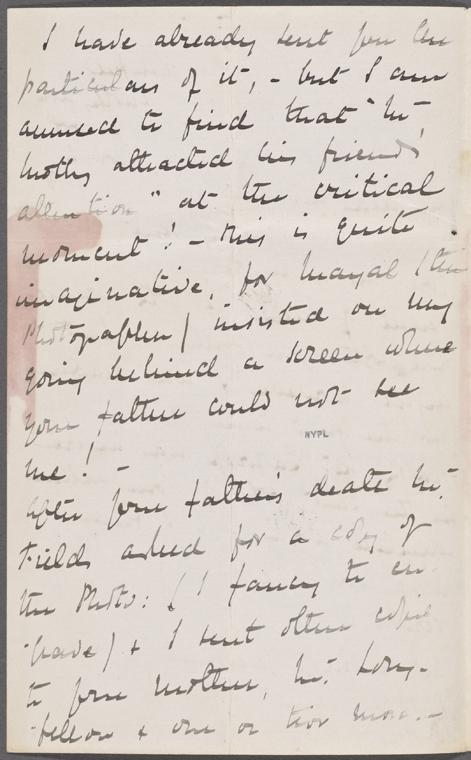 I have already sent you the
particulars of it, - but I am
amused to find that "Mr
Motley attracted his friend's
attention" at the critical
moment! - this is quite
imaginative, for Mayal (the
Photographer) insisted on my
going behind a screen where
your father could not see
me! -
After your father's death Mr.
Fields asked for a copy of
the Photo: (I fancy to en-
-grave) & I sent other copies
to your mother, Mr. Long-
-fellow & one or two more. -
NYPL